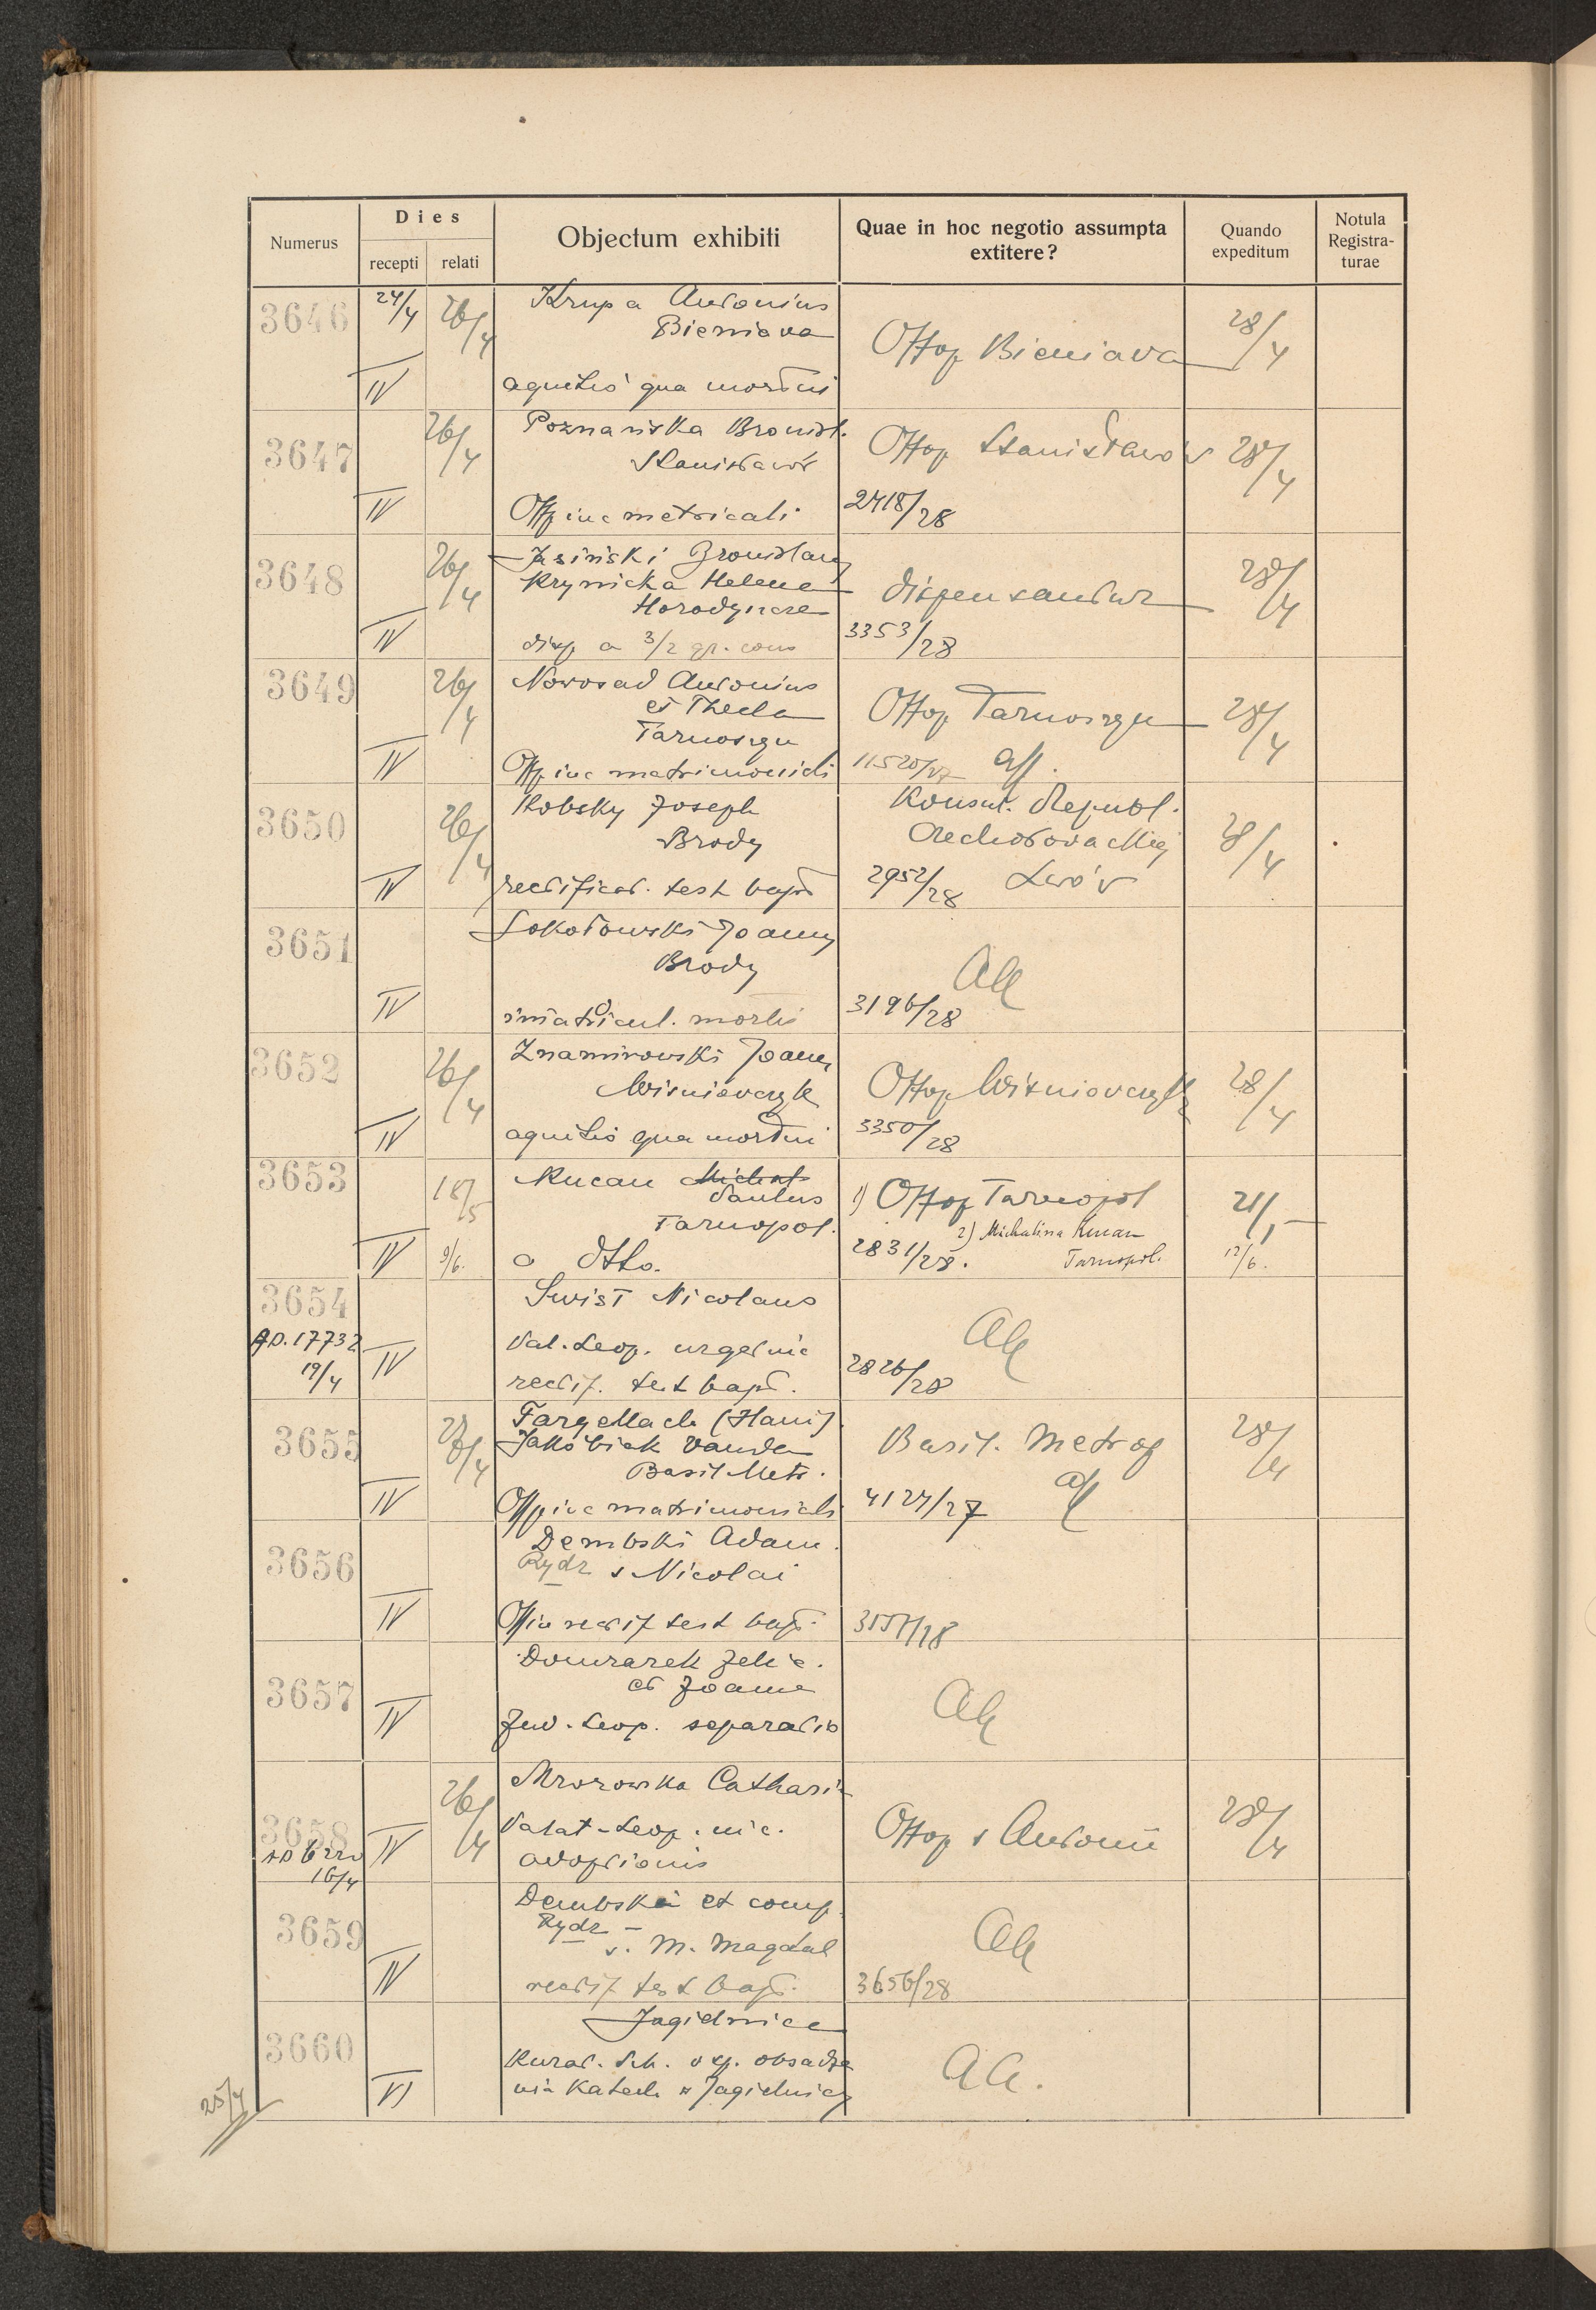 Numerus
Dies
recepti relati
Objectum exhibiti
Quae in hoc negotio assumpta
extitere?
Quando
expeditum
Notula
Registra-
turae
3646 24/4 26/4 Krupa Antonius
Bieniava
Offop Bieniava 28/4
IV agnitio qua mortui
3647 26/4 Poznańska Bronisł.
Stanisławów
Offop Stanisławów 28/4
IV Offp inc metricali 2418/28
3648 26/4 Jasiński Bronislaus
Krynicka Helena
Horodyncze
dispensantur 28/4
IV disp a 3/2 gr. cons 3353/28
3649 26/4 Novosad Antonius
et Thecla
Tarnosygn
Offop Tarnosygn 28/4
IV Offp inc matrimoniali 11520/27 aff.
3650 26/4 Robsky Joseph
Brody
Konsul. Republ.
Czechosłovackiej 28/4
Lwów
IV rectificat. test bapt 2952/28
3651 Sokołowski Joannes
Brody
Aa
IV immatricul. mortis 3196/28
3652 26/4 Znamirowski Joannes
Wisniovczyk
Offop Wisniovczyk 28/4
IV agnitio qua mortui 3350/28
3653 18/5 Kucan Michał
Paulus
Tarnopol.
1) Offop Tarnopol 21/5
2) Michalina Kucan
Tarnopol. 12/6.
IV 9/6. a dtto. 2831/28.
3654 Swist Nicolaus
AD. 17732
19/4
IV Pal. Leop. urget inc
rectif. test bapt.
Aa
2826/28
3655 28/4 Jakóbiak Vanda
Basil Metr.
Basil. Metrop 28/4
aff
IV Offp inc matrimoniali 4124/27
3656 Dembski Adam.
Rydz s Nicolai
IV Offin rectif test bapt. 3157/28
3657
et Joanna
Aa
IV Jud. Leop. separatio
3658 26/4 Mrozowska Catharin
16/4
IV Palat-Leop. inc.
adoptionis
Offop s Antonii 28/4
3659 Dembski et comp.
Rydz
s. M. Magdal
Aa
IV rectif test bapt. 3656/28
3660 Jagielnica
Kurat. Sch. osp. obsadze
VI nia Katech w Jagielnicy
Aa.
25/4